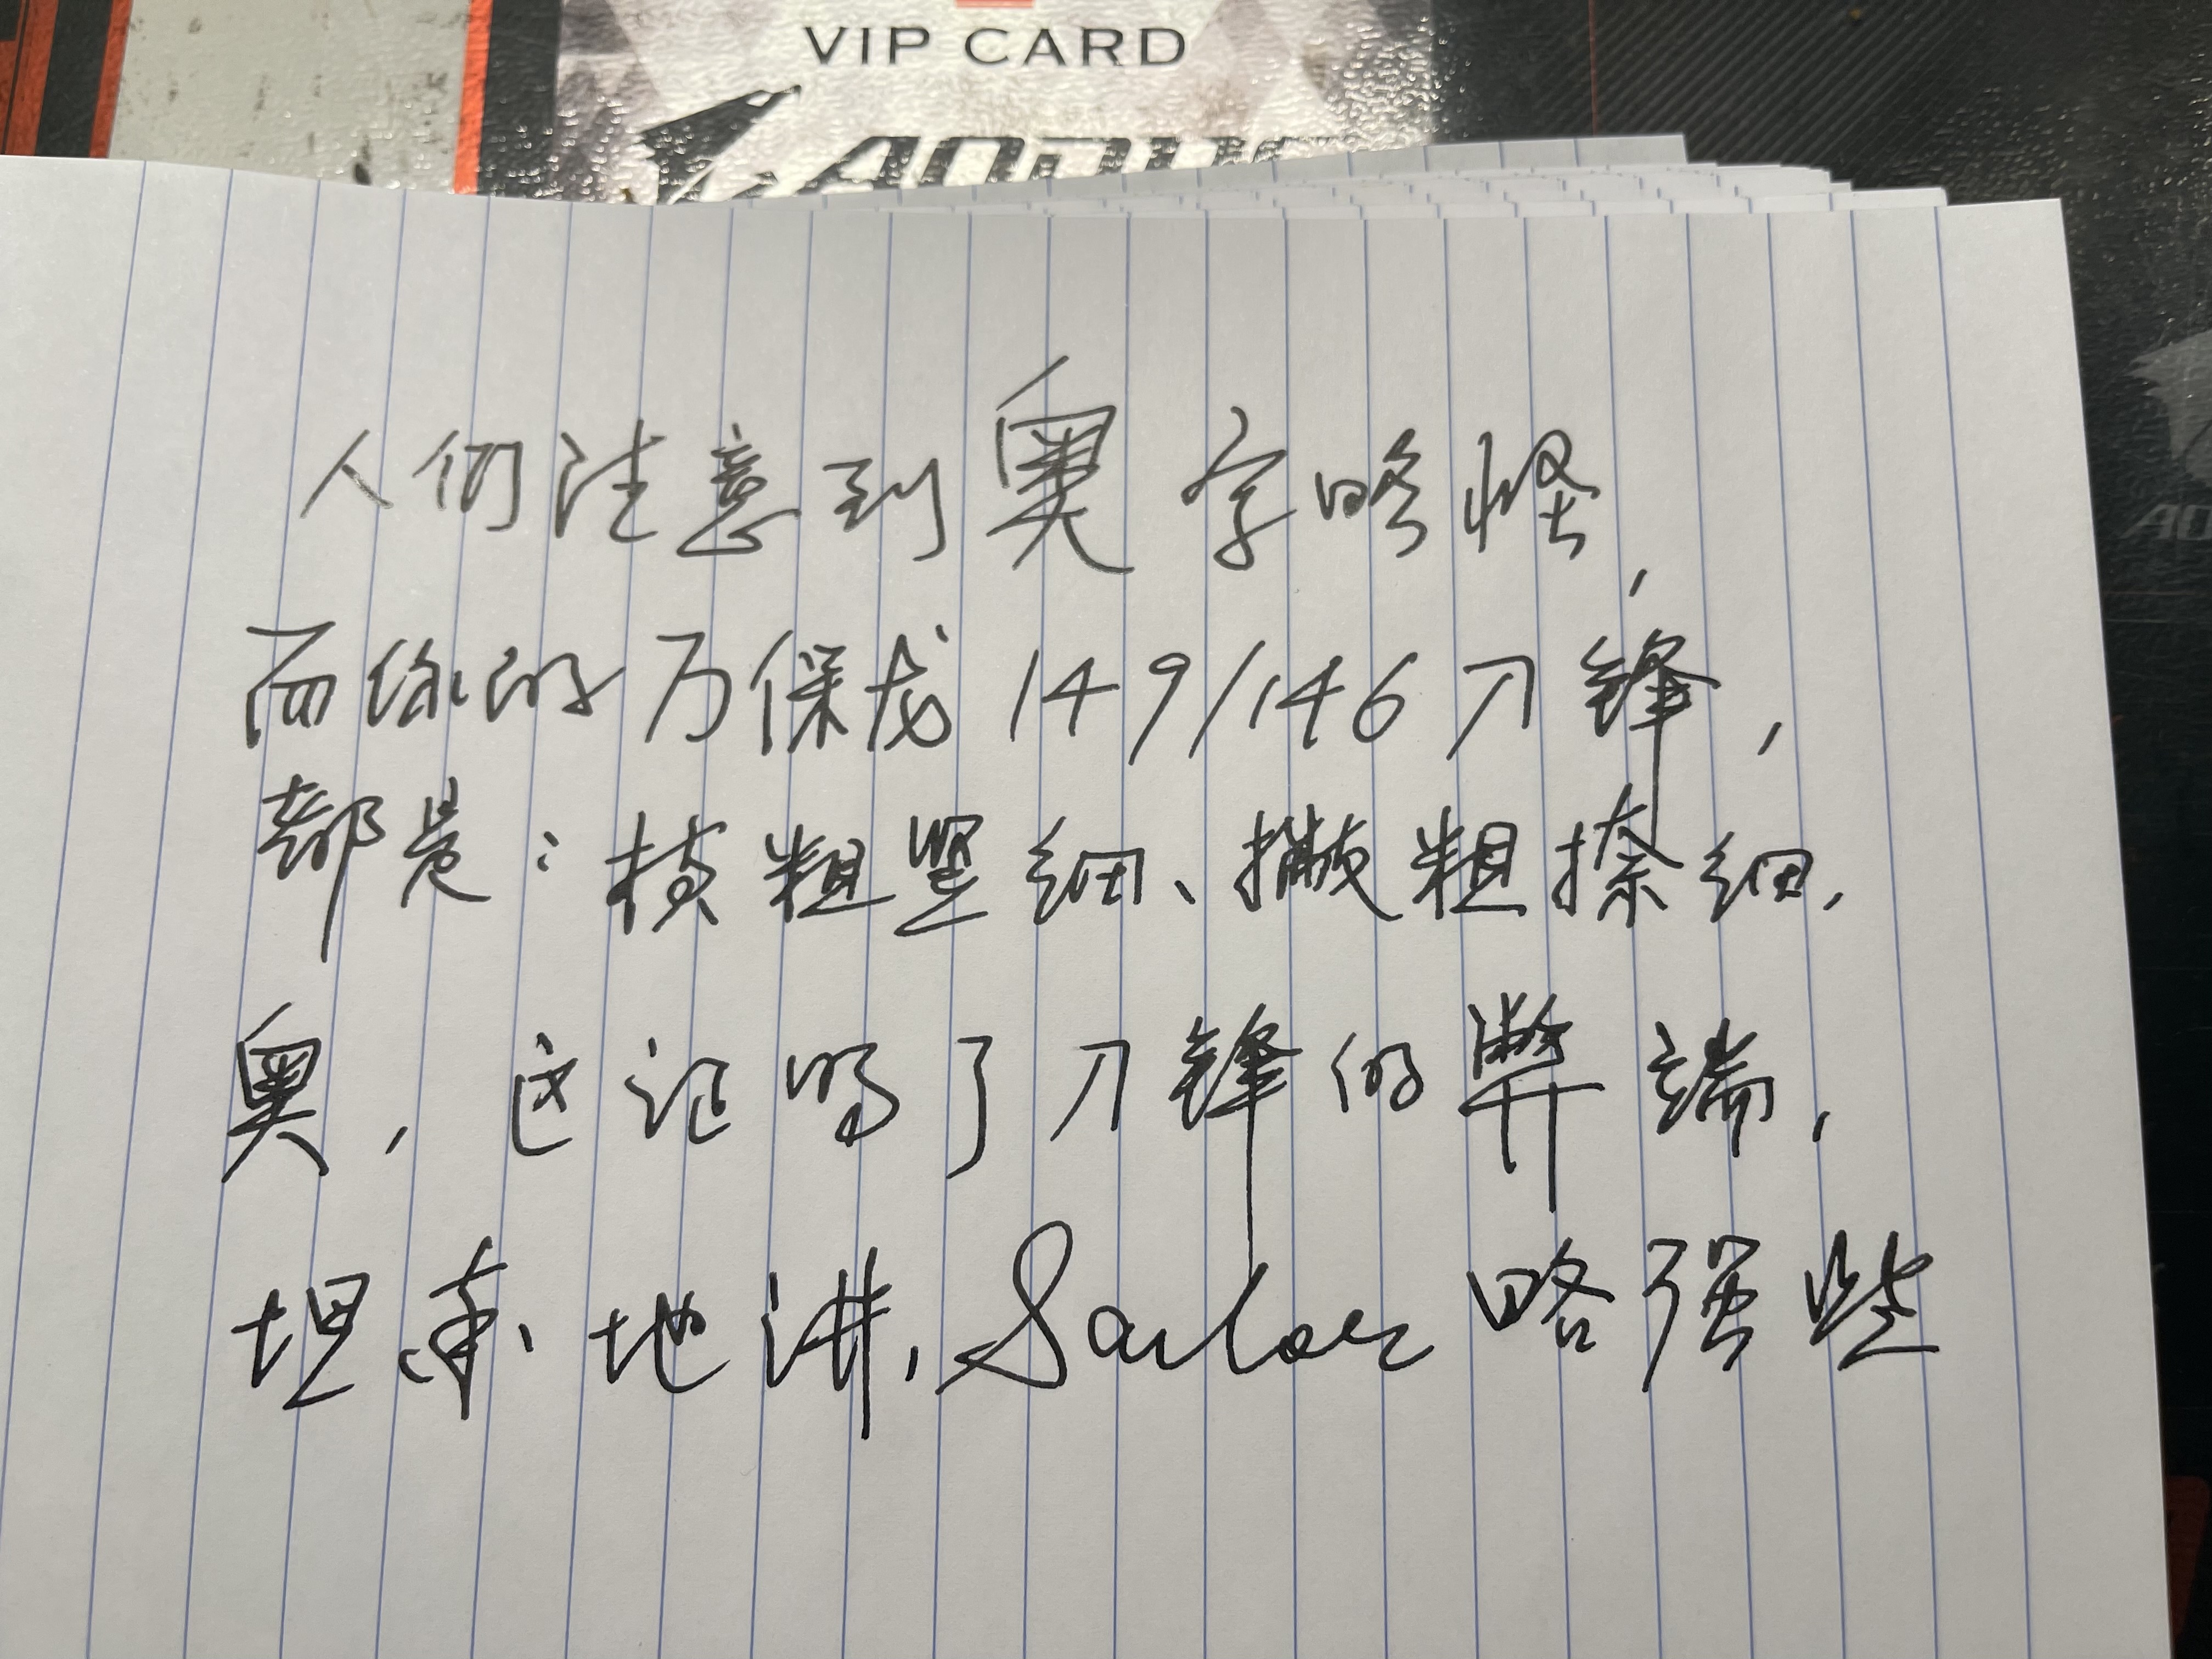 VIP CARD
AORUS
人们注意到奥字略怪,
而你的万保龙149/146刀锋,
都是:横粗竖细、撇粗捺细.
奥,这证明了刀锋的弊端,
坦率地讲,Sailor略强些